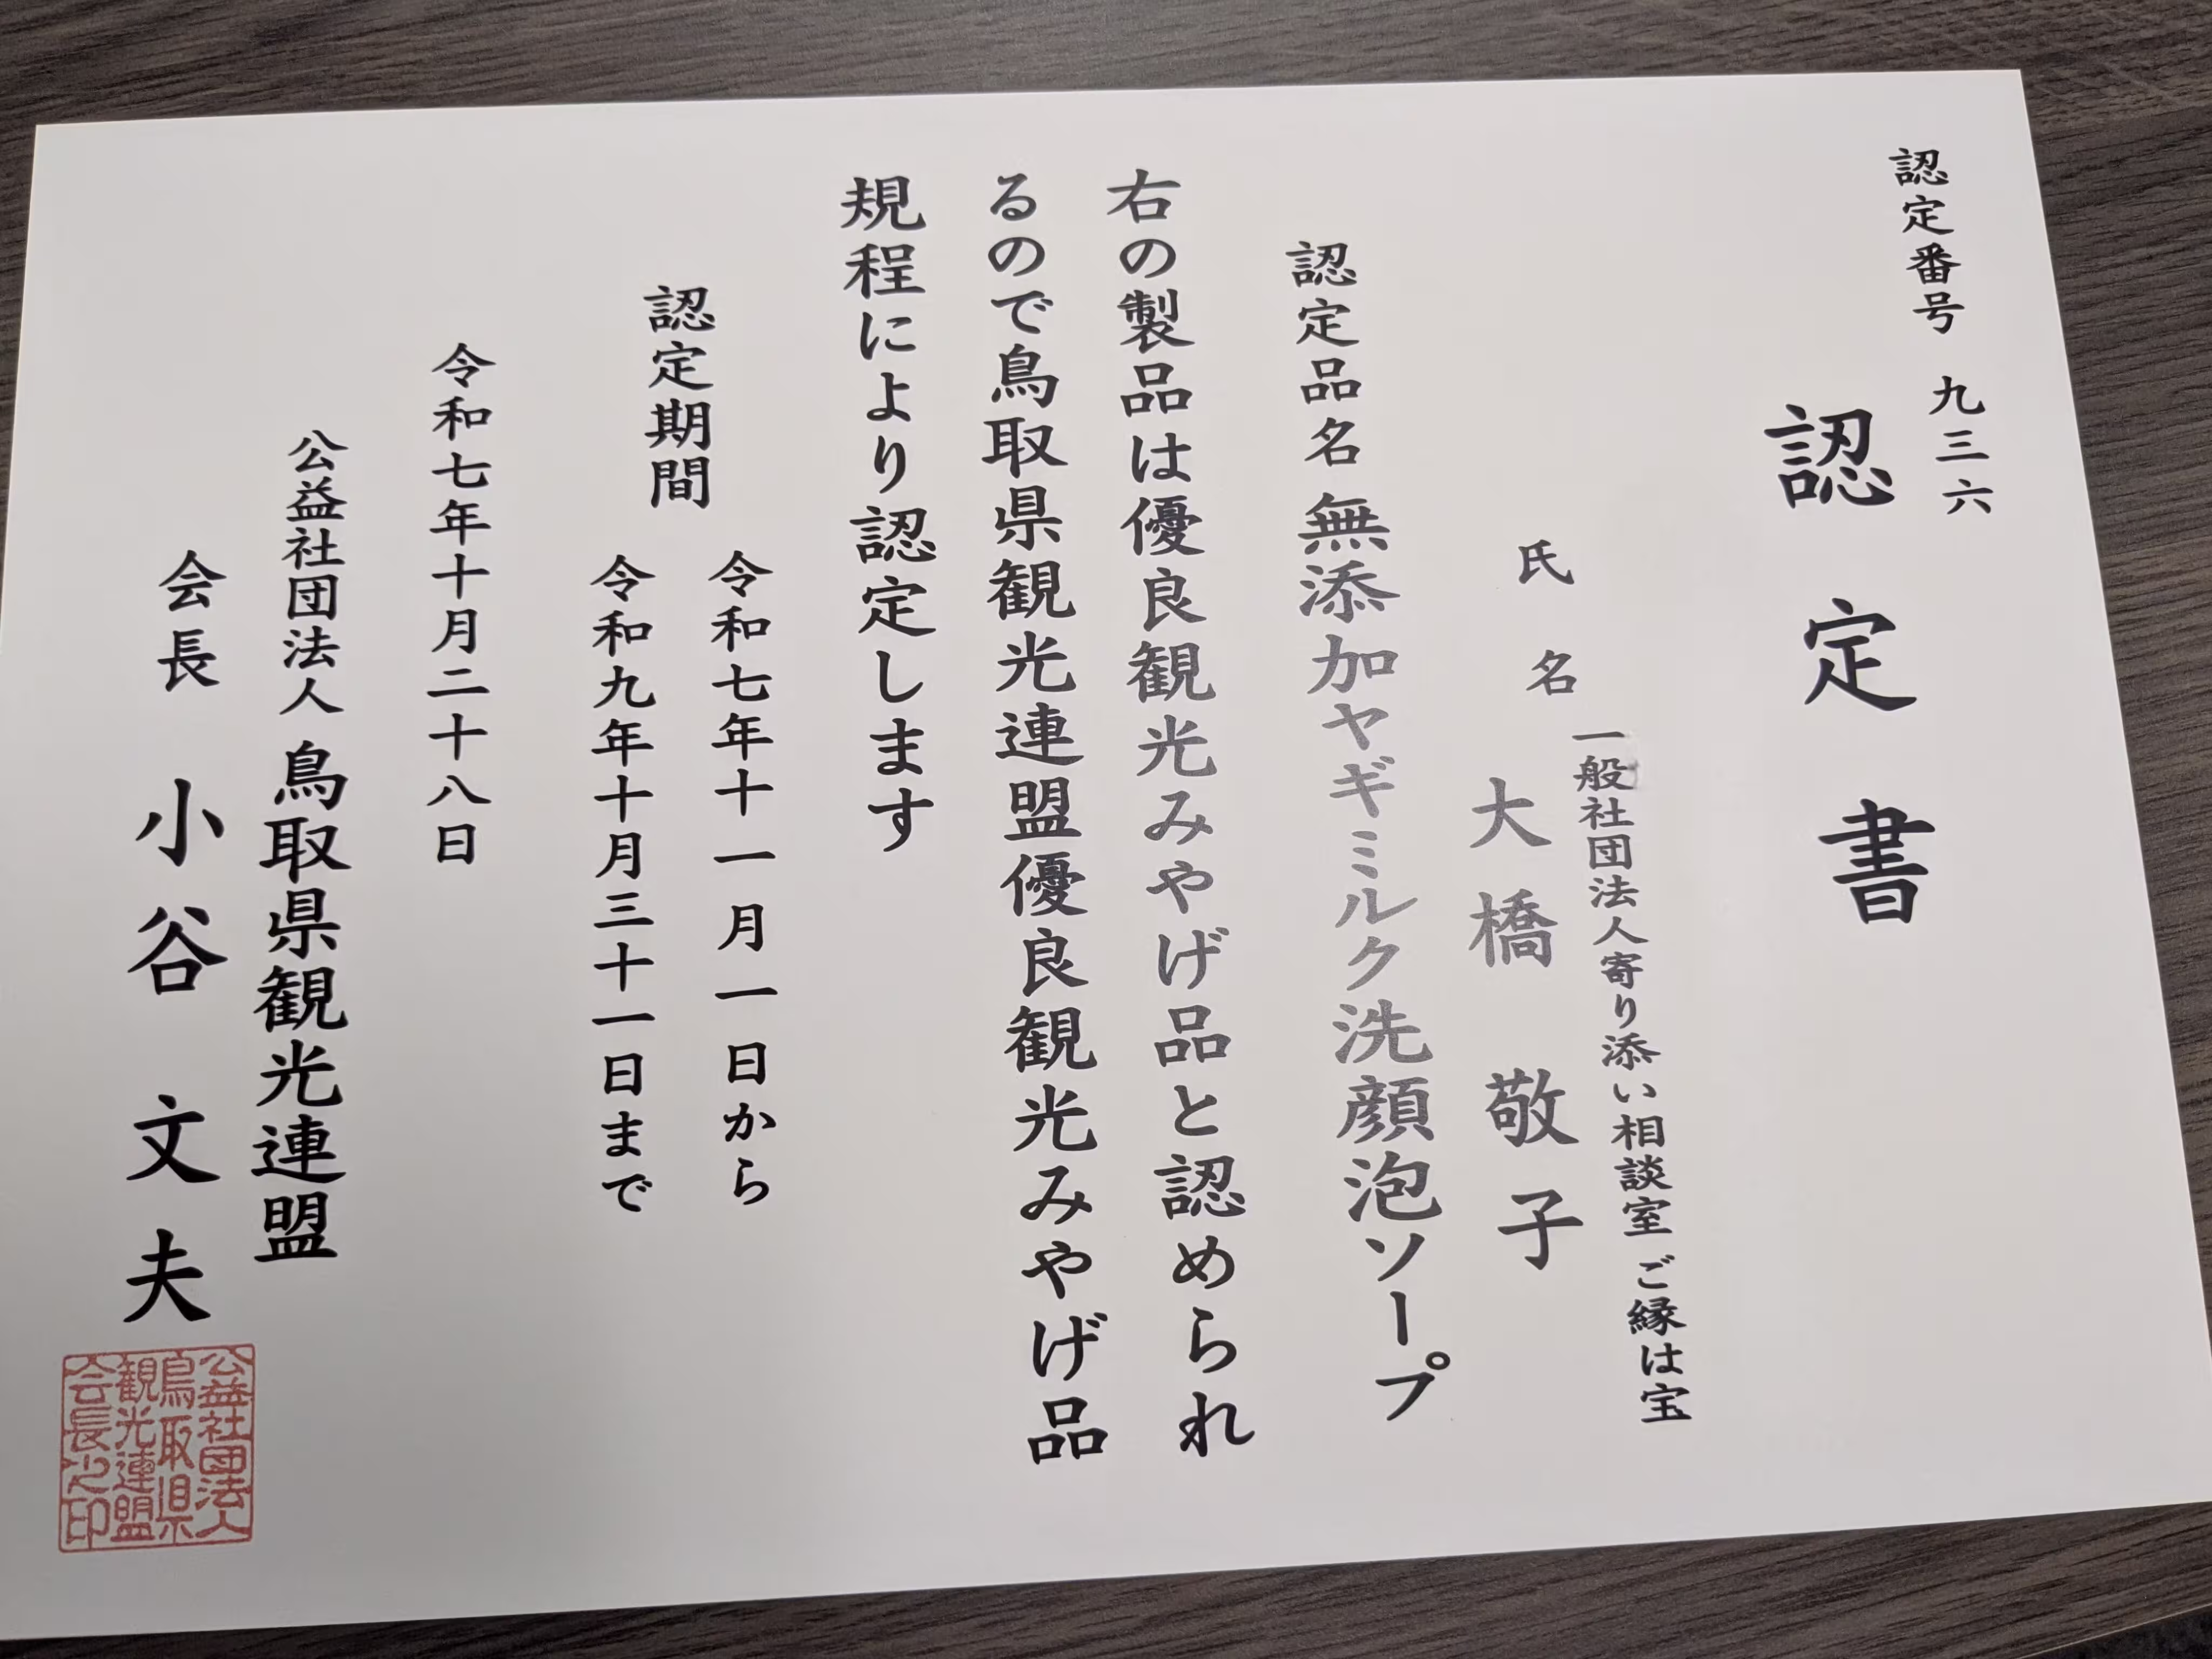 認定番号 九三六
認定書
氏名
一般社団法人寄り添い相談室 ご縁は宝
大橋 敬子
認定品名 無添加ヤギミルク洗顔泡ソープ
右の製品は優良観光みやげ品と認められ
るので鳥取県観光連盟優良観光みやげ品
規程により認定します
認定期間
令和七年十一月一日から
令和九年十月三十一日まで
令和七年十月二十八日
公益社団法人 鳥取県観光連盟
会長 小谷 文夫
公益社団法人
鳥取県
観光連盟
会長之印